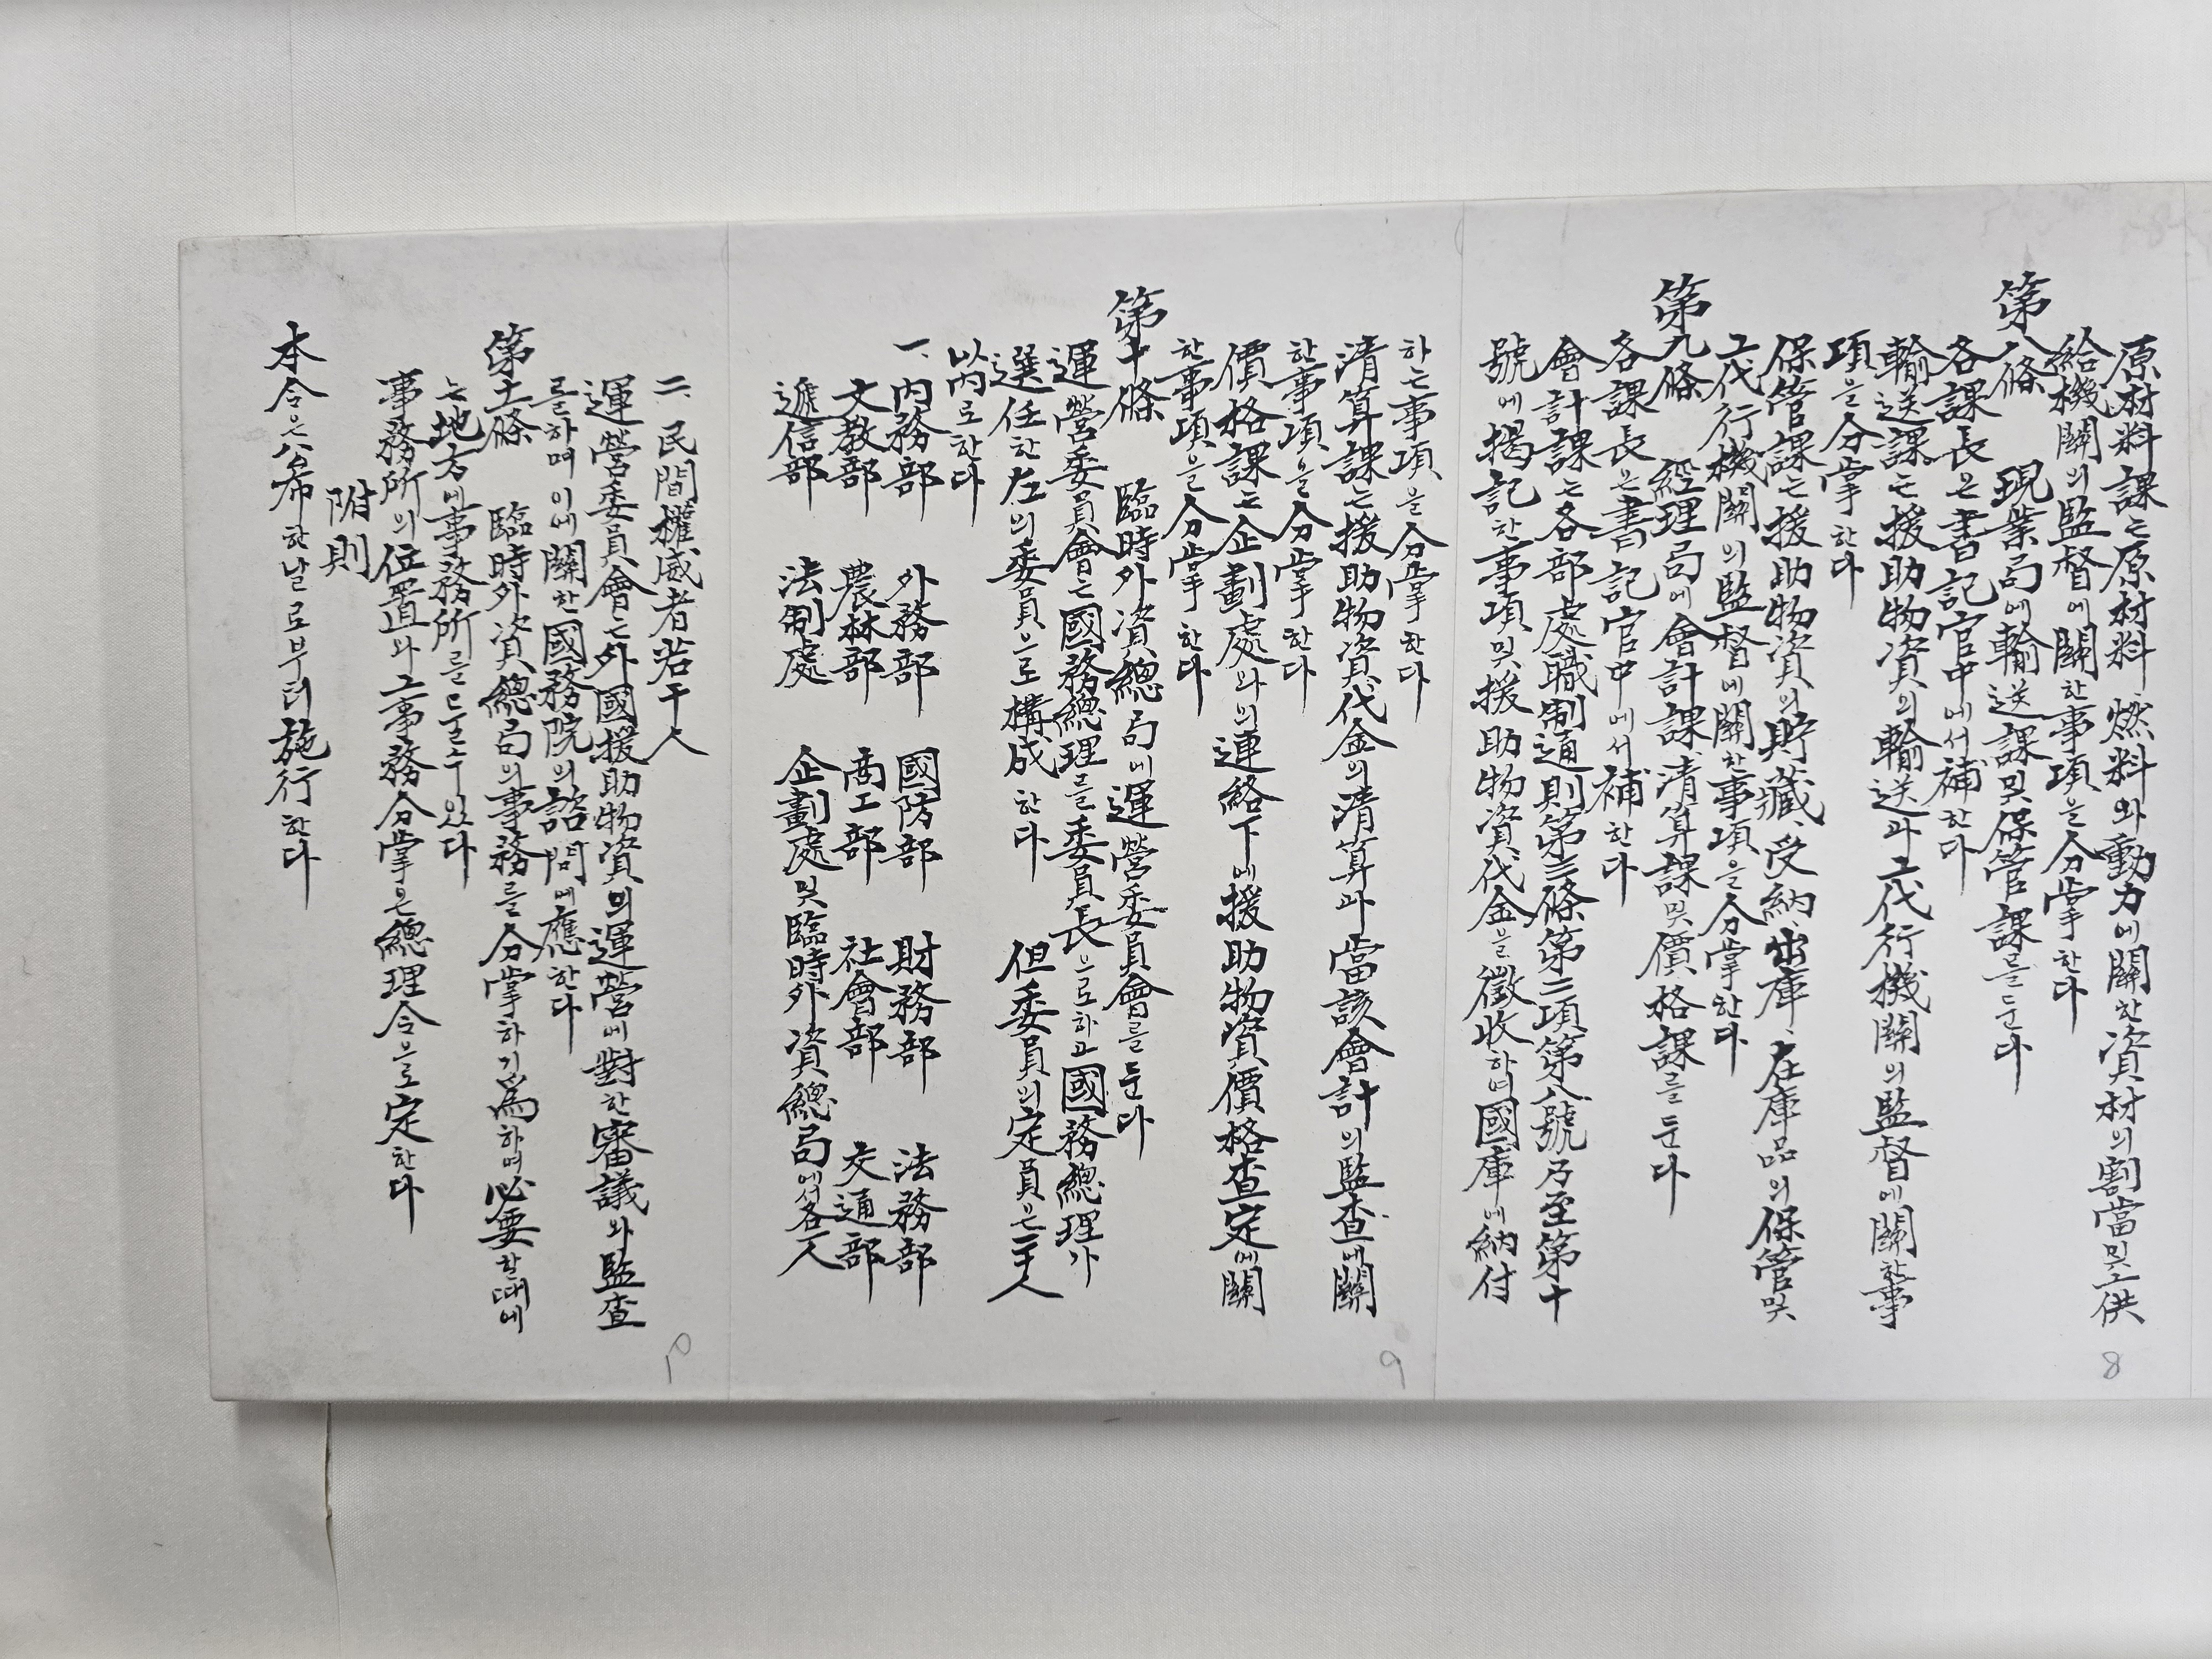 原材料課는原材料 燃料와動力에關한資材의割當및그供
給機關의監督에關한事項을分掌한다
第八條 現業局에輸送課및保管課를둔다
各課長은書記官中에서補한다
輸送課는援助物資의輸送과그代行機關의監督에關한事
項을分掌한다
保管課는援助物資의貯藏、受納、出庫、在庫品의保管및
그代行機關의監督에關한事項을分掌한다
第九條 經理局에會計課、清算課및價格課를둔다
各課長은書記官中에서補한다
會計課는各部處職制通則第三條第二項第八號乃至第十
號에揭記한事項및援助物資代金을徵收하여國庫에納付
8
하는事項을分掌한다
清算課는援助物資代金의清算과當該會計의監查에關
한事項을分掌한다
價格課는企劃處와의連絡下에援助物資價格查定에關
한事項을分掌한다
第十條 臨時外資總局에運營委員會를둔다
運營委員會는國務總理를委員長으로하고國務總理가
選任한左의委員으로構成한다 但委員의定員은二十人
以內로한다
一、內務部 外務部 國防部 財務部 法務部
文教部 農林部 商工部 社會部 交通部
遞信部 法制處 企劃處및臨時外資總局에서各一人
9
二、民間權威者若干人
運營委員會는外國援助物資의運營에對한審議와監查
를하며이에關한國務院의諮問에應한다
第十一條 臨時外資總局의事務를分掌하기爲하여必要한때에
는地方에事務所를둘수있다
事務所의位置와그事務分掌은總理令으로定한다
附則
本令은公布한날로부터施行한다
10